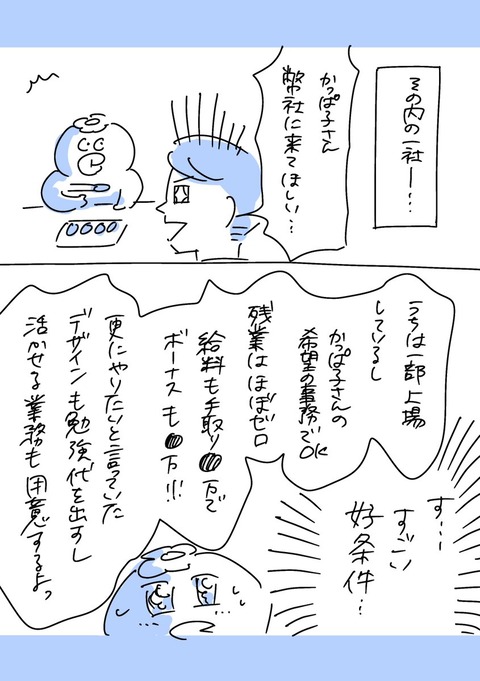 その内の一社ー…
かっぱ子さん
弊社に来てほしい…
うちは一部上場
しているし
かっぱ子さんの
希望の事務でOK
残業はほぼゼロ
給料も手取り●万で
ボーナスも●万!!!
更にやりたいと言っていた
デザインも勉強代を出すし
活かせる業務も用意するよっ
す…
すごい
好条件…